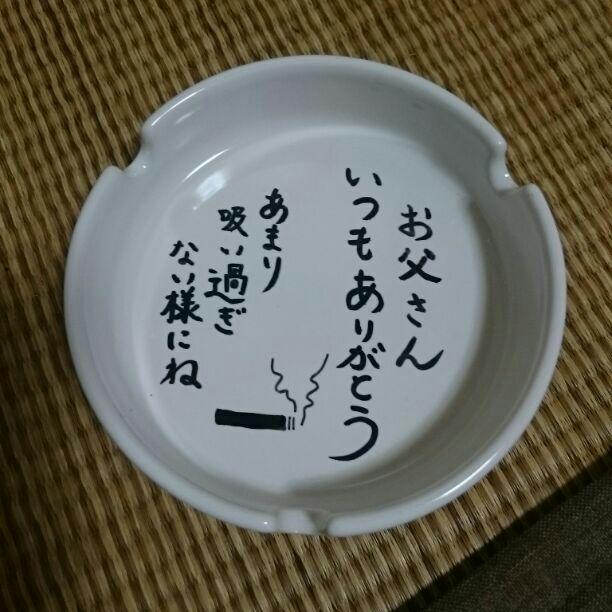 お父さん
いつもありがとう
あまり
吸い過ぎ
ない様にね